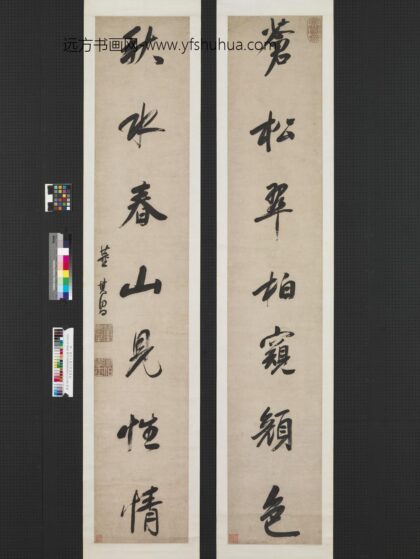 远方书画网 www.yfshuhua.com
蒼松翠柏窺顏色
秋水春山見性情
董其昌